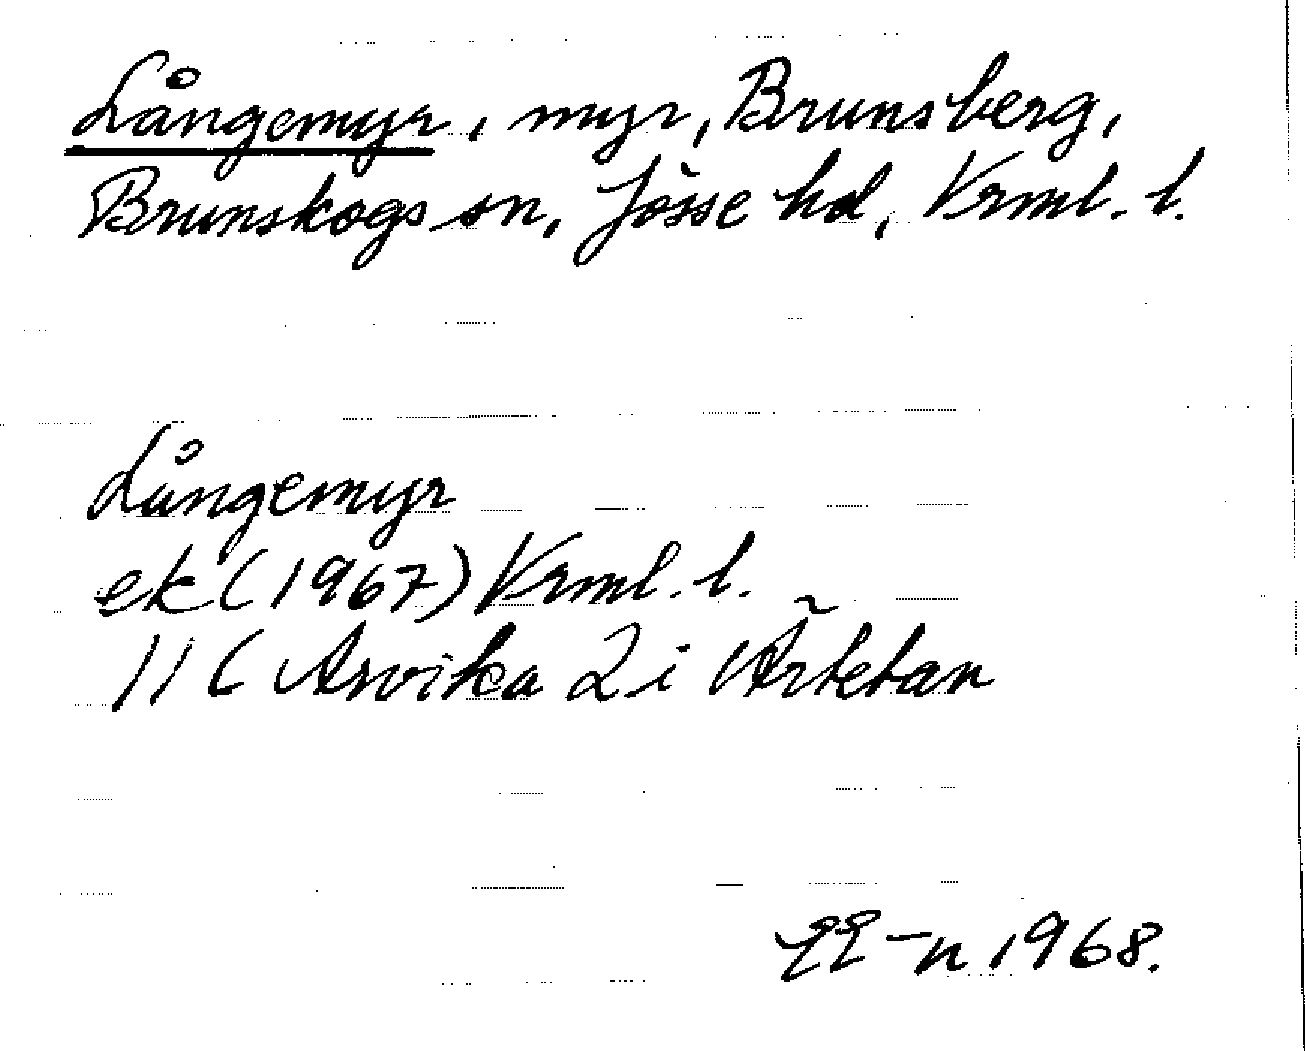 Långemyr, myr, Brunsberg,
Brunskogs sn, Jösse hd, Vrml. l.
Långemyr
ek (1967) Vrml. l.
11 C Arvika 2 i
-n 1968.